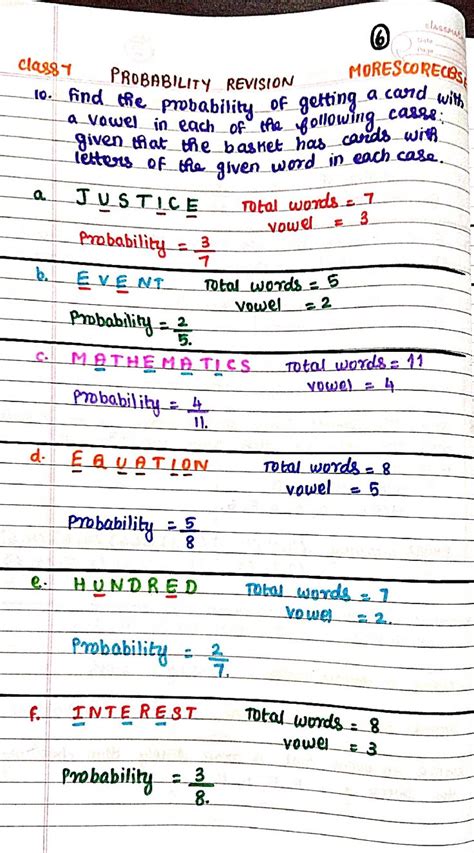 6
classmate
Date
Page
class 7
PROBABILITY REVISION
MORESCORECBSE
10. Find the probability of getting a card with
a vowel in each of the following cases;
given that the basket has cards with
letters of the given word in each case.
a JUSTICE Total words = 7
vowel = 3
Probability = 3/7
b. EVENT Total words = 5
vowel = 2
Probability = 2/5.
c. MATHEMATICS Total words = 11
vowel = 4
Probability = 4/11.
d. EQUATION Total words = 8
vowel = 5
Probability = 5/8
e. HUNDRED Total words = 7
vowel = 2.
Probability = 2/7.
f. INTEREST Total words = 8
vowel = 3
Probability = 3/8.